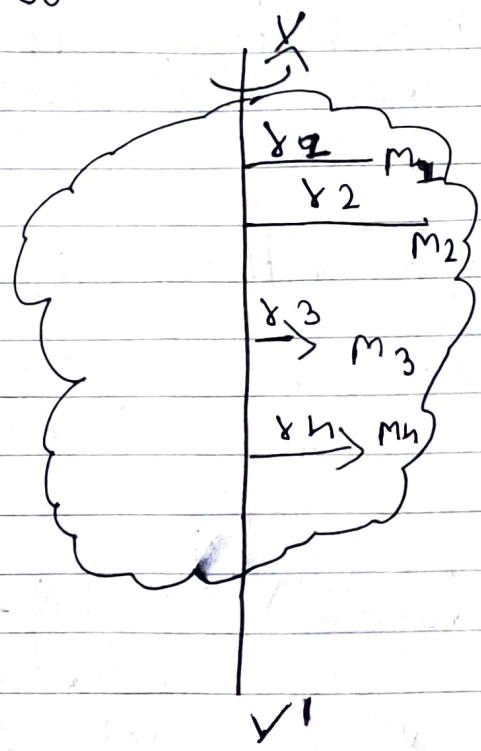 Y
r1 m1
r2
m2
r3
m3
rn mn
Y'